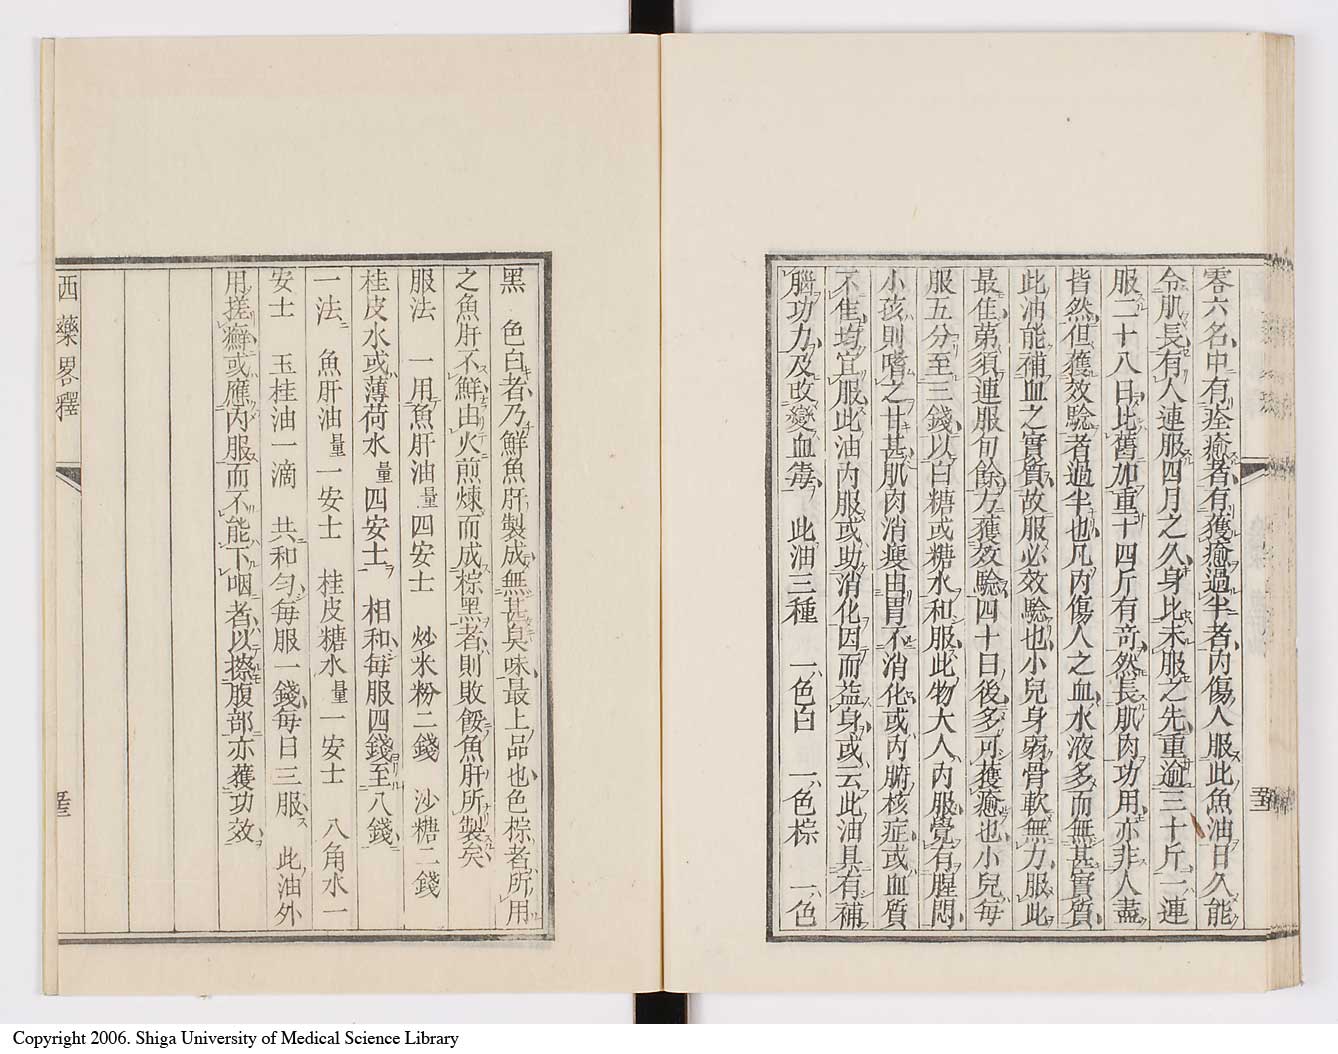 零六名中有痊癒者有獲癒過半者內傷人服此魚油日久能
令肌長有人連服四月之久身比未服之先重逾三十斤一連
服二十八日比舊加重十四斤有奇然長肌肉功用亦非人盡
皆然但獲效驗者過半也凡內傷人之血水液多而無甚實質
此油能補血之實質故服必效驗也小兒身弱骨軟無力服此
最佳第須連服旬餘方獲效驗四十日後多可獲癒也小兒每
服五分至三錢以白糖或糖水和服此物大人內服覺有腥悶
小孩則嗜之甘甚肌肉消瘦由胃不消化或內腑核症或血質
不佳均宜服此油內服或助消化因而益身或云此油具有補
腦功力及改變血毒 此油三種 一色白 一色棕 一色
黑 色白者乃鮮魚肝製成無甚臭味最上品也色棕者所用
之魚肝不鮮由火煎煉而成棕黑者則敗餒魚肝所製矣
服法 一用魚肝油量四安士 炒米粉二錢 沙糖二錢
桂皮水或薄荷水量四安士 相和每服四錢至八錢
一法 魚肝油量一安士 桂皮糖水量一安士 八角水一
安士 玉桂油一滴 共和勻每服一錢每日三服 此油外
用搓癬或應內服而不能下咽者以擦腹部亦獲功效
西藥畧釋
Copyright 2006. Shiga University of Medical Science Library